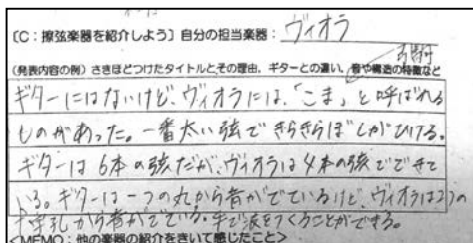 〔C：擦弦楽器を紹介しよう〕自分の担当楽器：ヴィオラ
(発表内容の例) さきほどつけたタイトルとその理由，ギターとの違い，音や構造の特徴など
ギターにはないけど、ヴィオラには、「こま」と呼ばれる
ものがあった。一番太い弦できらきらぼしがひける。
ギターは6本の弦だが、ヴィオラは4本の弦でできて
いる。ギターは一つの丸から音がでているけど、ヴィオラは2つの
f字孔から音がでている。手で波をつくることができる。
<MEMO：他の楽器の紹介をきいて感じたこと>